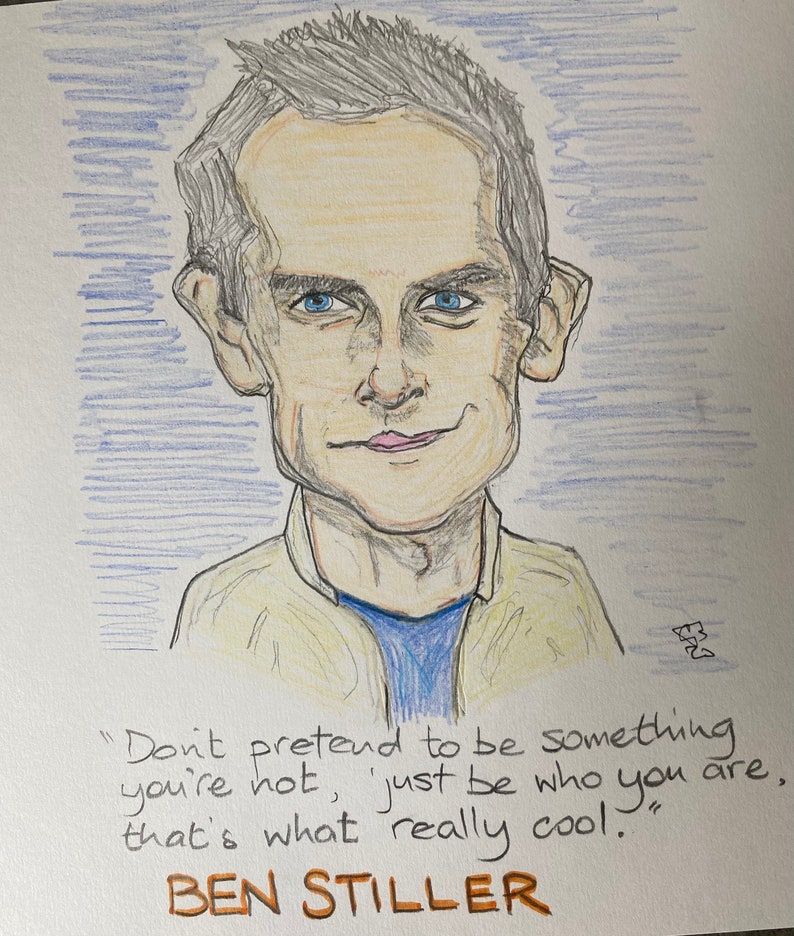 "Don't pretend to be something
you're not, just be who you are,
that's what really cool."
BEN STILLER